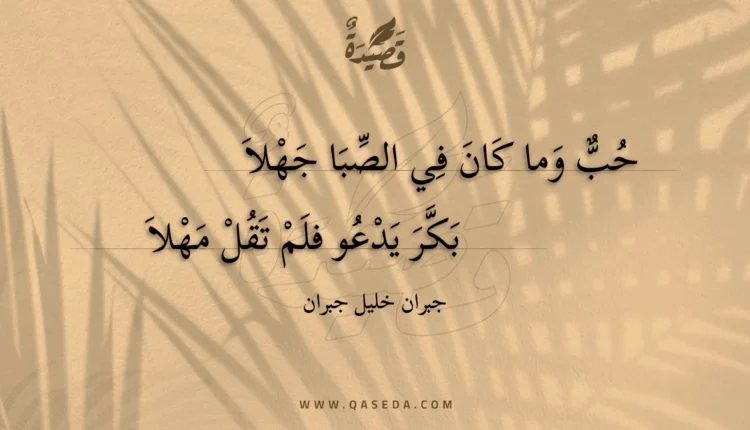 قَصِيْدَةٌ
حُبٌّ وَما كَانَ فِي الصِّبَا جَهْلاَ
بَكَّرَ يَدْعُو فلَمْ تَقُلْ مَهْلاَ
جبران خليل جبران
WWW.QASEDA.COM